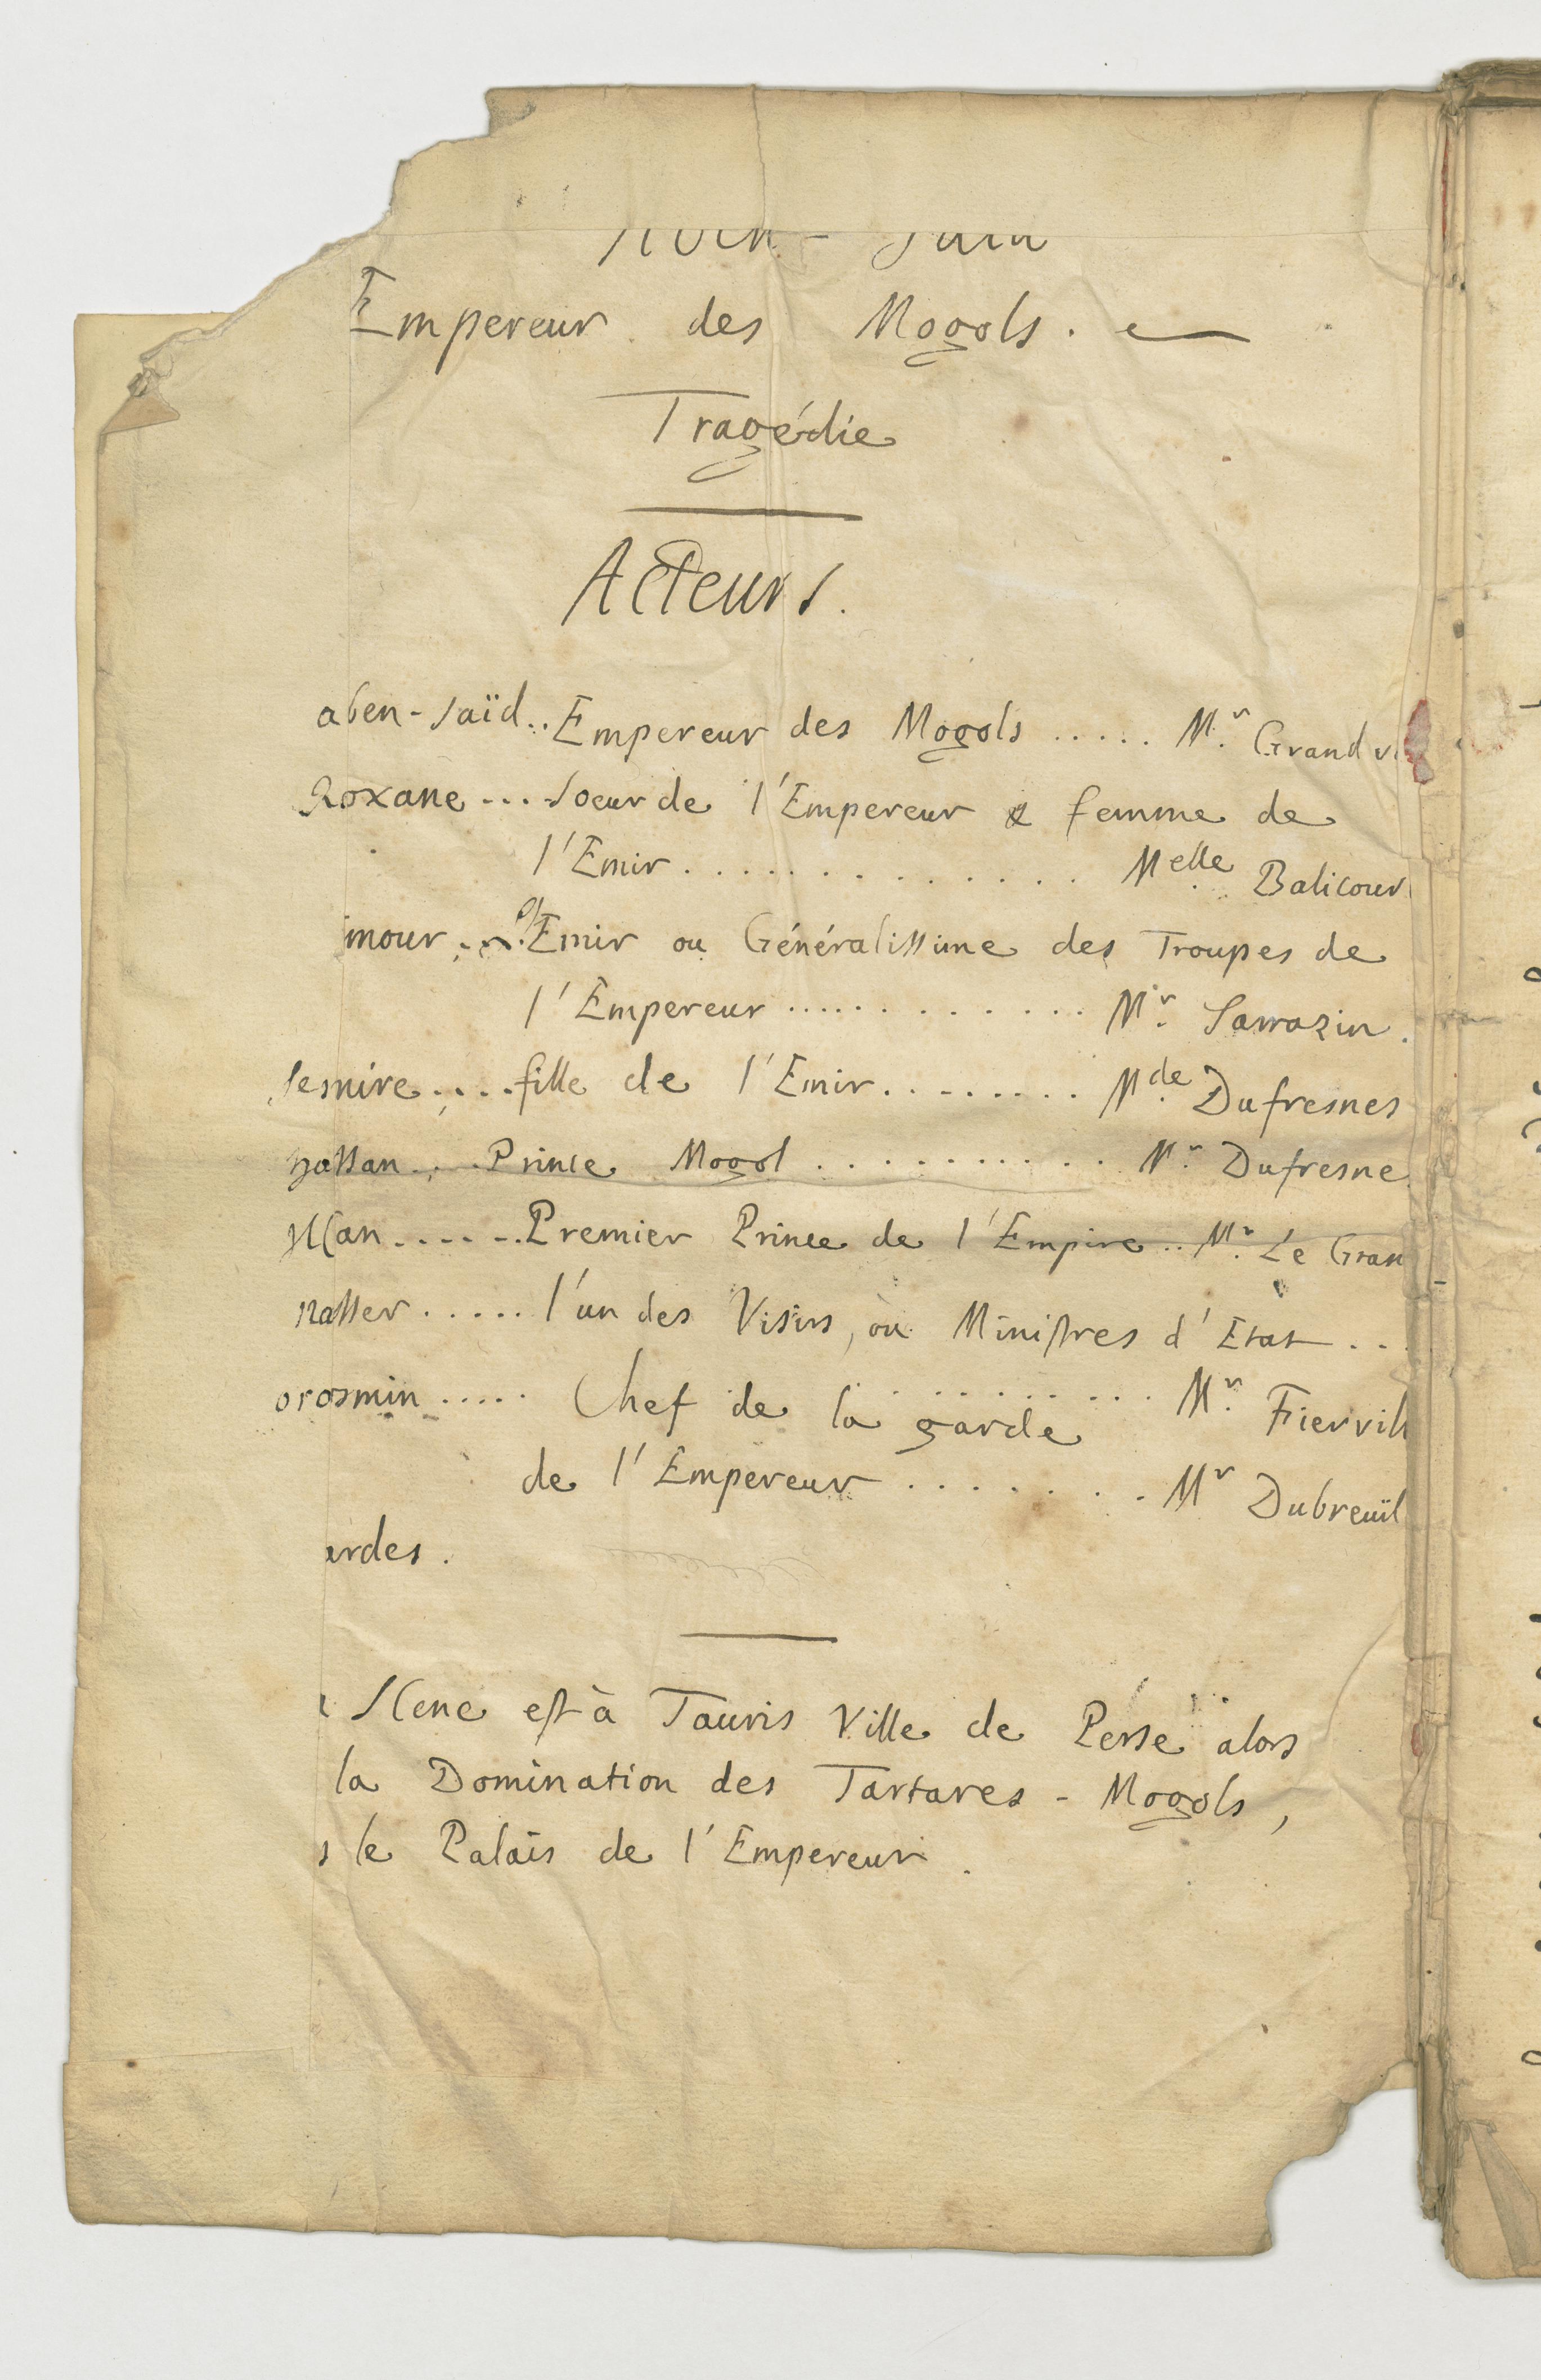 Aben-Saïd
Empereur des Mogols.
Tragédie
Acteurs.
aben-saïd.. Empereur des Mogols ..... Mr. Grandv
Roxane ... soeur de l'Empereur & femme de
l'Emir .............. Melle Balicour
mour .... Emir ou Généralissime des Troupes de
l'Empereur ............. Mr. Sarrazin.
semire .... fille de l'Emir ......... Mde. Dufresnes
hassan .... Prince Mogol ........... Mr. Dufresne
Ilcan ...... Premier Prince de l'Empire .. Mr. Le Gran
nasser ..... l'un des Visirs, ou Ministres d'Etat ...
........... Mr. Fiervill
orosmin ..... Chef de la garde
de l'Empereur ........ Mr Dubreuïl
ardes.
Scene est à Tauris Ville de Perse alors
la Domination des Tartares-Mogols,
s le Palais de l'Empereur.